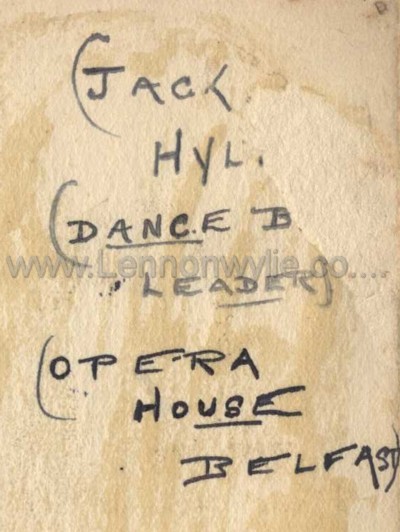 (JACK
HYL.
(DANCE B
LEADER)
www.Lennonwylie.co....
(OPERA
HOUSE
BELFAST)